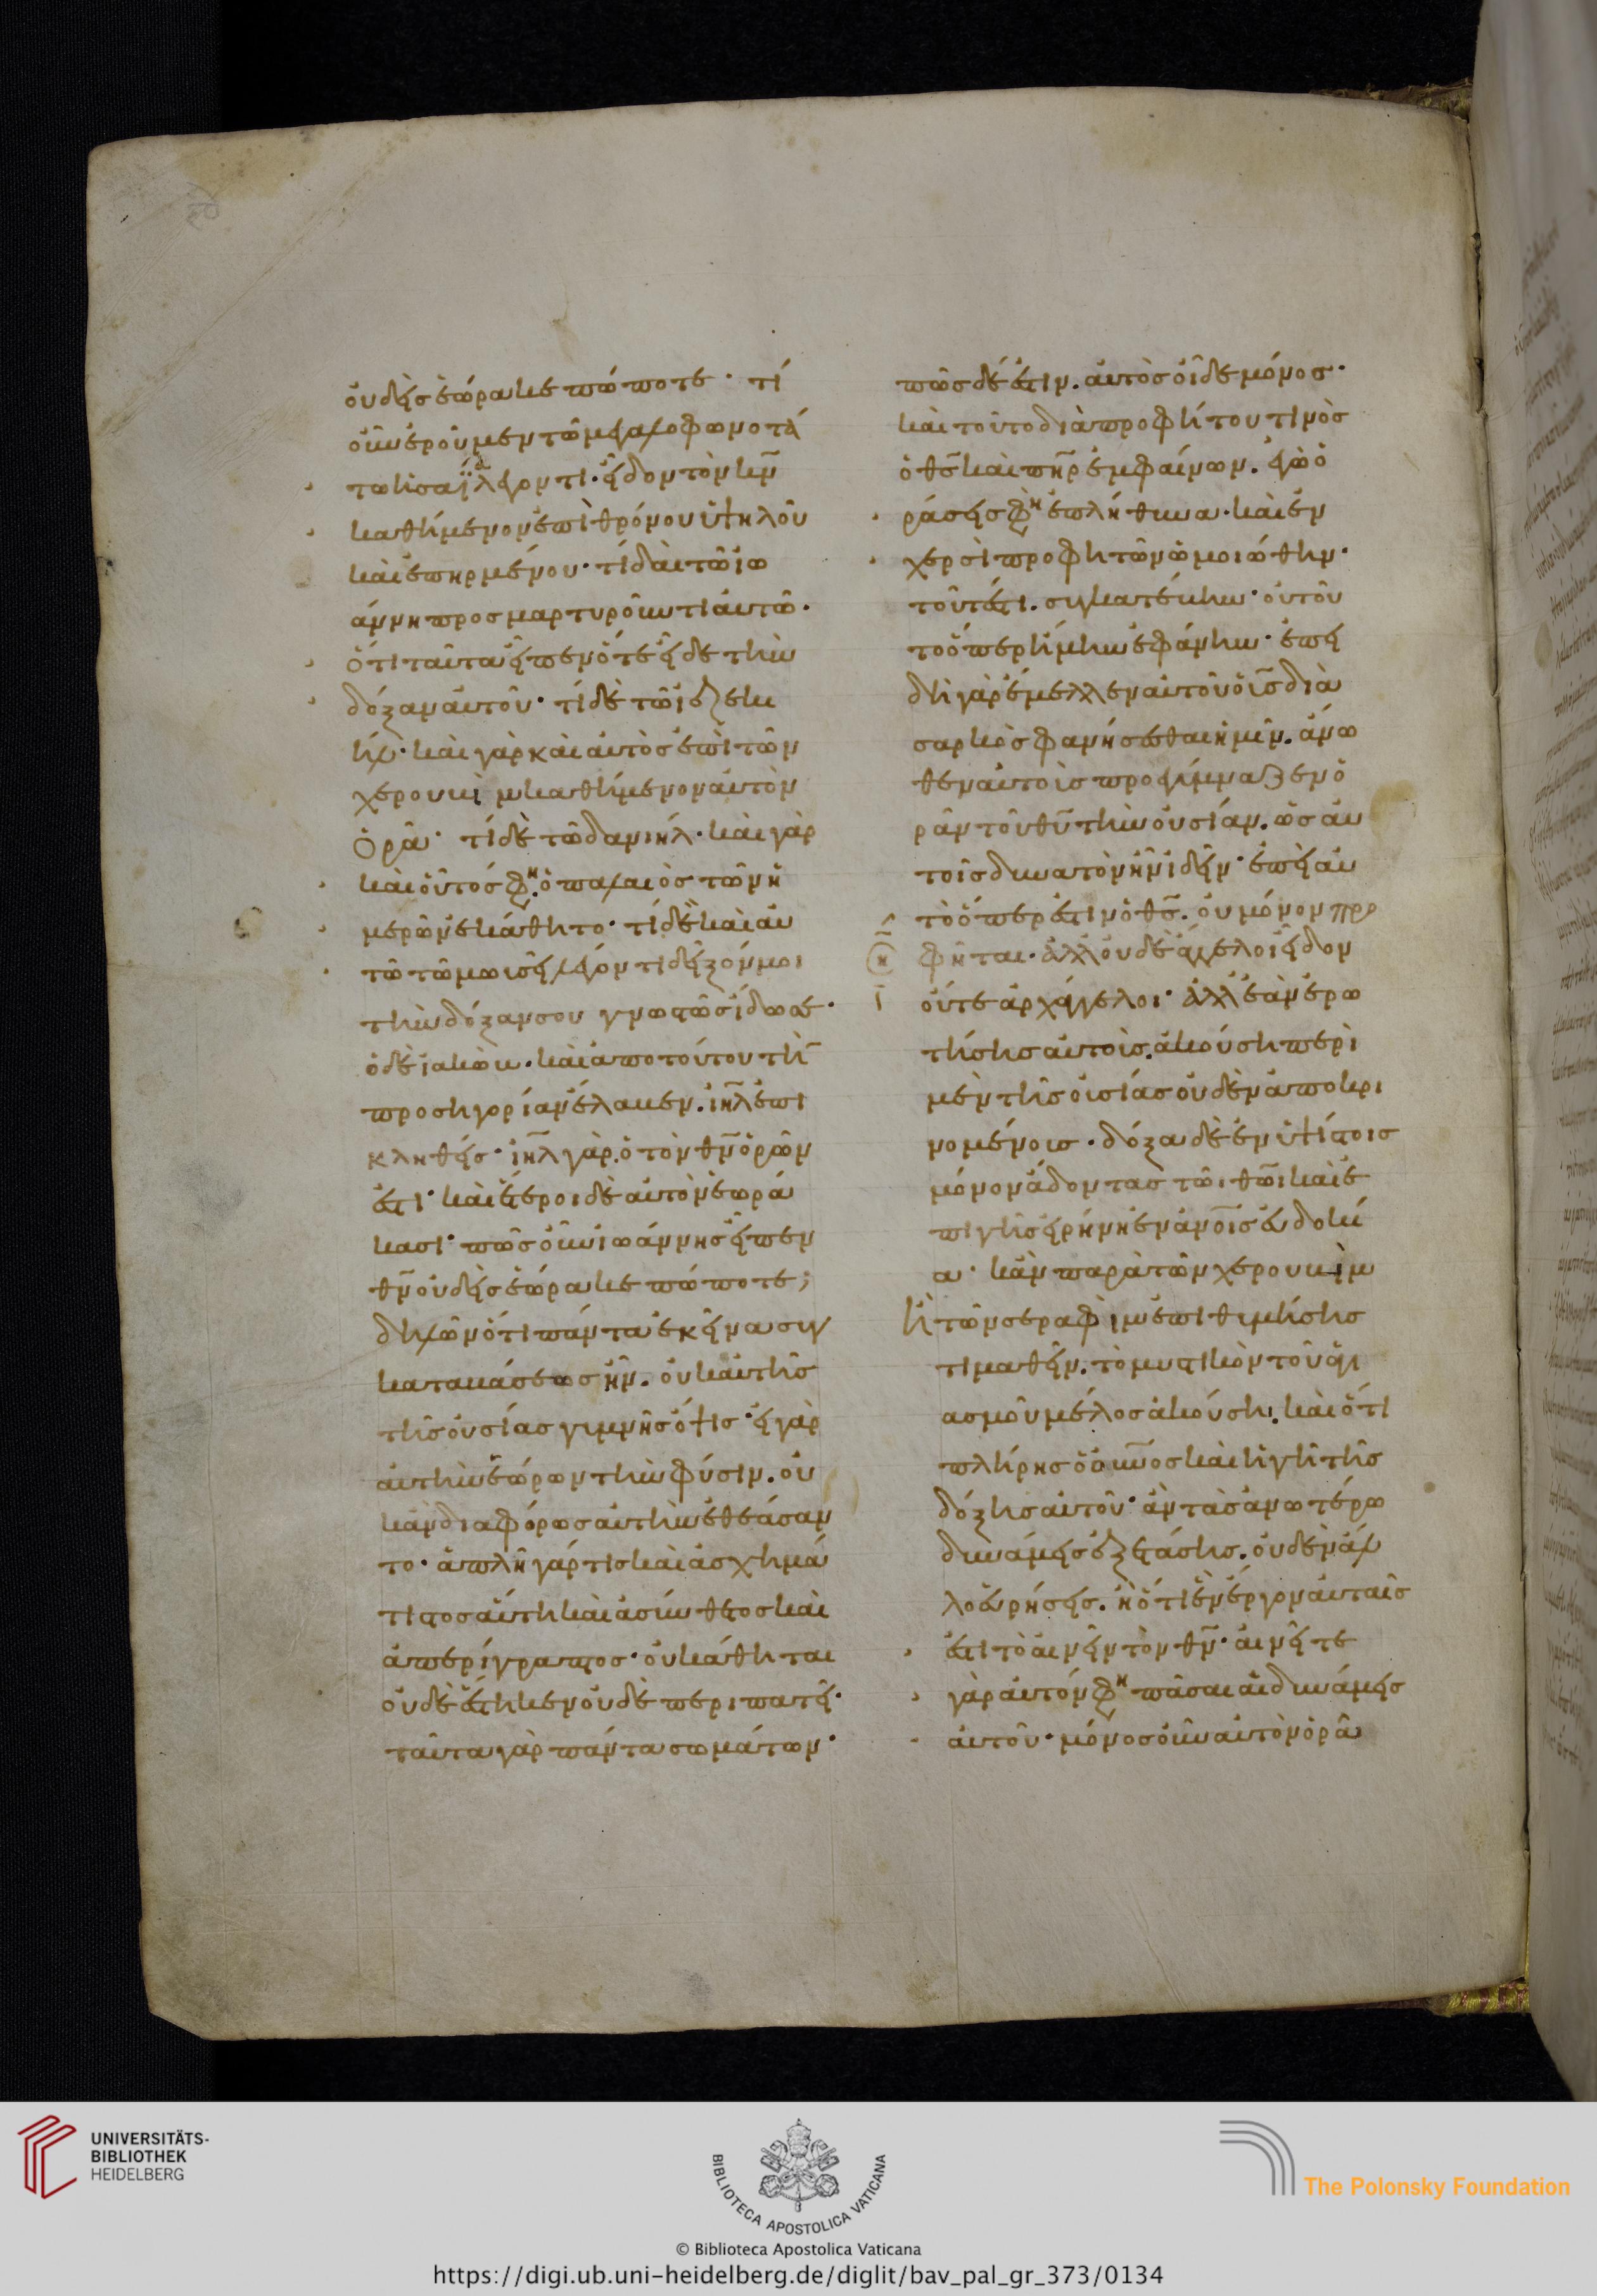 οὐδεὶς ἑώρακε πώποτε· τί
οὖν ἐροῦμεν τῶ μεγαλοφωνοτά
τω ἡσαΐα λέγοντι· εἶδον τὸν κν̄
καθήμενον ἐπὶ θρόνου ὑψηλοῦ
καὶ ἐπηρμένου· τί δαὶ τῶ ἰω
άννη προσμαρτυροῦντι αὐτῶ·
ὅτι ταῦτα εἶπεν ὅτε εἶδε τὴν
δόξαν αὐτοῦ· τί δὲ τῶ ἰεζεκι
ήλ· καὶ γὰρ καὶ αὐτὸς ἐπὶ τῶν
χερουβὶμ καθήμενον αὐτὸν
ὁρᾶ· τί δὲ τῶ δανιήλ· καὶ γὰρ
καὶ οὗτός φη· ὁ παλαιὸς τῶν ἡ
μερῶν ἐκάθητο· τί δὲ καὶ αὐ
τῶ τῶ μωϊσεῖ λέγοντι δεῖξόν μοι
τὴν δόξαν σου γνωστῶς ἴδω σε·
ὁ δὲ ἰακὼβ· καὶ ἀπὸ τούτου τὴν
προσηγορίαν ἔλαβεν. ἰηλ̄ ἐπι
κληθείς· ἰηλ̄ γὰρ ὁ τὸν θν̄ ὁρῶν
ἐστι· καὶ ἕτεροι δὲ αὐτὸν ἑωρά
κασι· πῶς οὖν ἰωάννης εἶπεν
θν̄ οὐδεὶς ἑώρακε πώποτε;
δηλῶν ὅτι πάντα ἐκεῖνα συγ
καταβάσεως ἦν. οὐκ αὐτῆς
τῆς οὐσίας γυμνῆς ὄψις· εἰ γὰρ
αὐτὴν ἑώρων τὴν φύσιν. οὐ
κἂν διαφόρως αὐτὴν ἐθεάσαν
το· ἁπλῆ γάρ τις καὶ ἀσχημά
τιστος αὕτη καὶ ἀσύνθετος καὶ
ἀπερίγραπτος· οὐ κάθηται
οὐδὲ ἕστηκεν οὐδὲ περιπατεῖ·
ταῦτα γὰρ πάντα σωμάτων·
πῶς δέ ἐστιν. αὐτὸς οἶδε μόνος·
καὶ τοῦτο διὰ προφήτου τινὸς
ὁ θς̄ καὶ πηρ̄ ἐμφαίνων. ἐγὼ ὁ
ράσεις φη ἐπλήθυνα· καὶ ἐν
χερσὶ προφητῶν ὡμοιώθην·
τουτέστι. συγκατέβην· οὐ τοῦ
το ὅπερ ἤμην ἐφάνην· ἐπει
δὴ γὰρ ἔμελλεν αὐτοῦ ὁ υς̄ διὰ
σαρκὸς φανήσεσθαι ἡμῖν. ἄνω
θεν αὐτοὺς προεγύμναζεν ὁ
ρᾶν τοῦ θῡ τὴν οὐσίαν. ὡς αὐ
τοῖς δυνατὸν ἦν ἰδεῖν· ἐπεὶ αὐ
τὸ ὅπερ ἐστιν ὁ θς̄. οὐ μόνον προ
φῆται· ἀλλ οὐδὲ ἄγγελοι εἶδον
οὔτε ἀρχάγγελοι· ἀλλ ἐὰν ἐρω
τήσης αὐτοὺς. ἀκούση περὶ
μὲν τῆς οὐσίας οὐδὲν ἀποκρι
νομένοις· δόξα δὲ ἐν ὑψίστοις
μόνον ἄδοντας τῶι θωῑ καὶ ἐ
πὶ γῆς εἰρήνη ἐν ἀνοῑς εὐδοκί
α· κἂν παρὰ τῶν χερουβὶμ
ἢ τῶν σεραφὶμ ἐπιθυμήσης
τι μαθεῖν. τὸ μυστικὸν τοῦ ἁγι
ασμοῦ μέλος ἀκούση. καὶ ὅτι
πλήρης ὁ οὐνος̄ καὶ ἡ γῆ τῆς
δόξης αὐτοῦ· ἂν τὰς ἀνωτέρω
δυνάμεις ἐξετάσης. οὐδὲν ἄλ
λο εὑρήσεις. ἢ ὅτι ἓν ἔργον αὐταῖς
ἐστι τὸ αἰνεῖν τὸν θν̄· αἰνεῖτε
γὰρ αὐτόν φη πᾶσαι αἱ δυνάμεις
αὐτοῦ· μόνος οὖν αὐτὸν ὁρᾶ
UNIVERSITÄTS-
BIBLIOTHEK
HEIDELBERG
BIBLIOTECA APOSTOLICA VATICANA
The Polonsky Foundation
© Biblioteca Apostolica Vaticana
https://digi.ub.uni-heidelberg.de/diglit/bav_pal_gr_373/0134